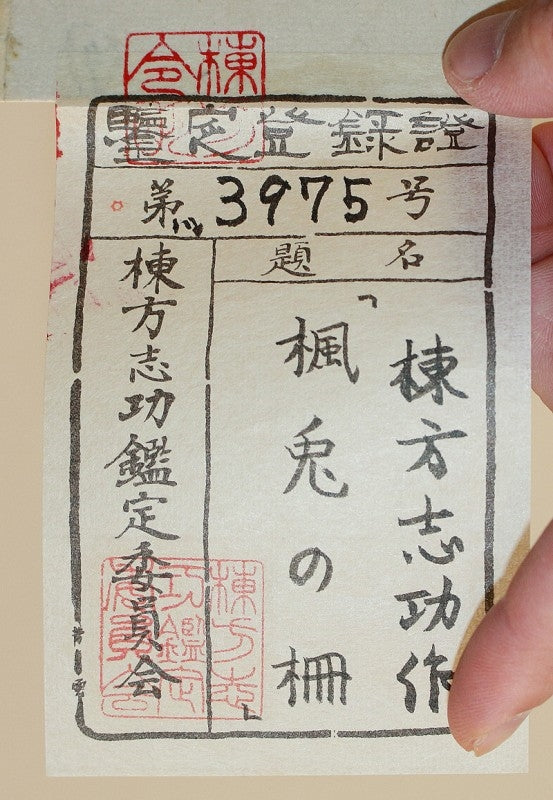 鑒定登録證
第3975号
題名
棟方志功作
「楓兎の柵」
棟方志功鑑定委員会
棟方志
功鑑定
委員会